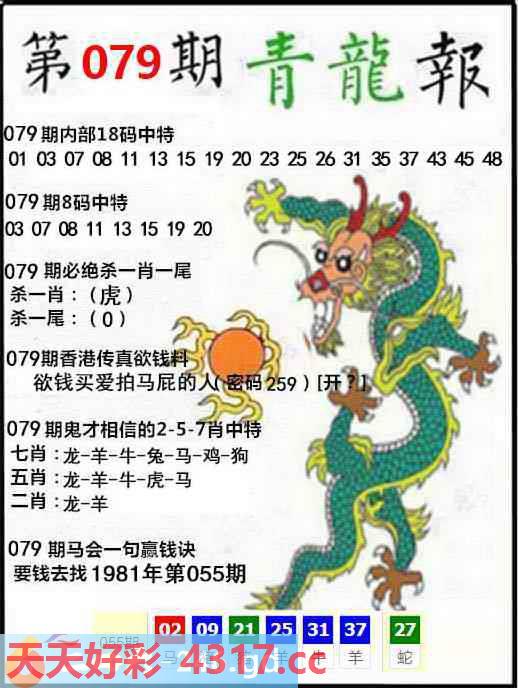 第079期青龍報
079期内部18码中特
01 03 07 08 11 13 15 19 20 23 25 26 31 35 37 43 45 48
079期8码中特
03 07 08 11 13 15 19 20
079 期必绝杀一肖一尾
杀一肖：（虎）
杀一尾：（0）
079期香港传真欲钱料
欲钱买爱拍马屁的人(密码259）[开？]
079期鬼才相信的2-5-7肖中特
七肖：龙-羊-牛-兔-马-鸡-狗
五肖：龙-羊-牛-虎-马
二肖：龙-羊
079 期马会一句赢钱诀
要钱去找1981年第055期
055期 02 09 21 25 31 37 27
马 羊 牛 羊 蛇
天天好彩 4317.cc